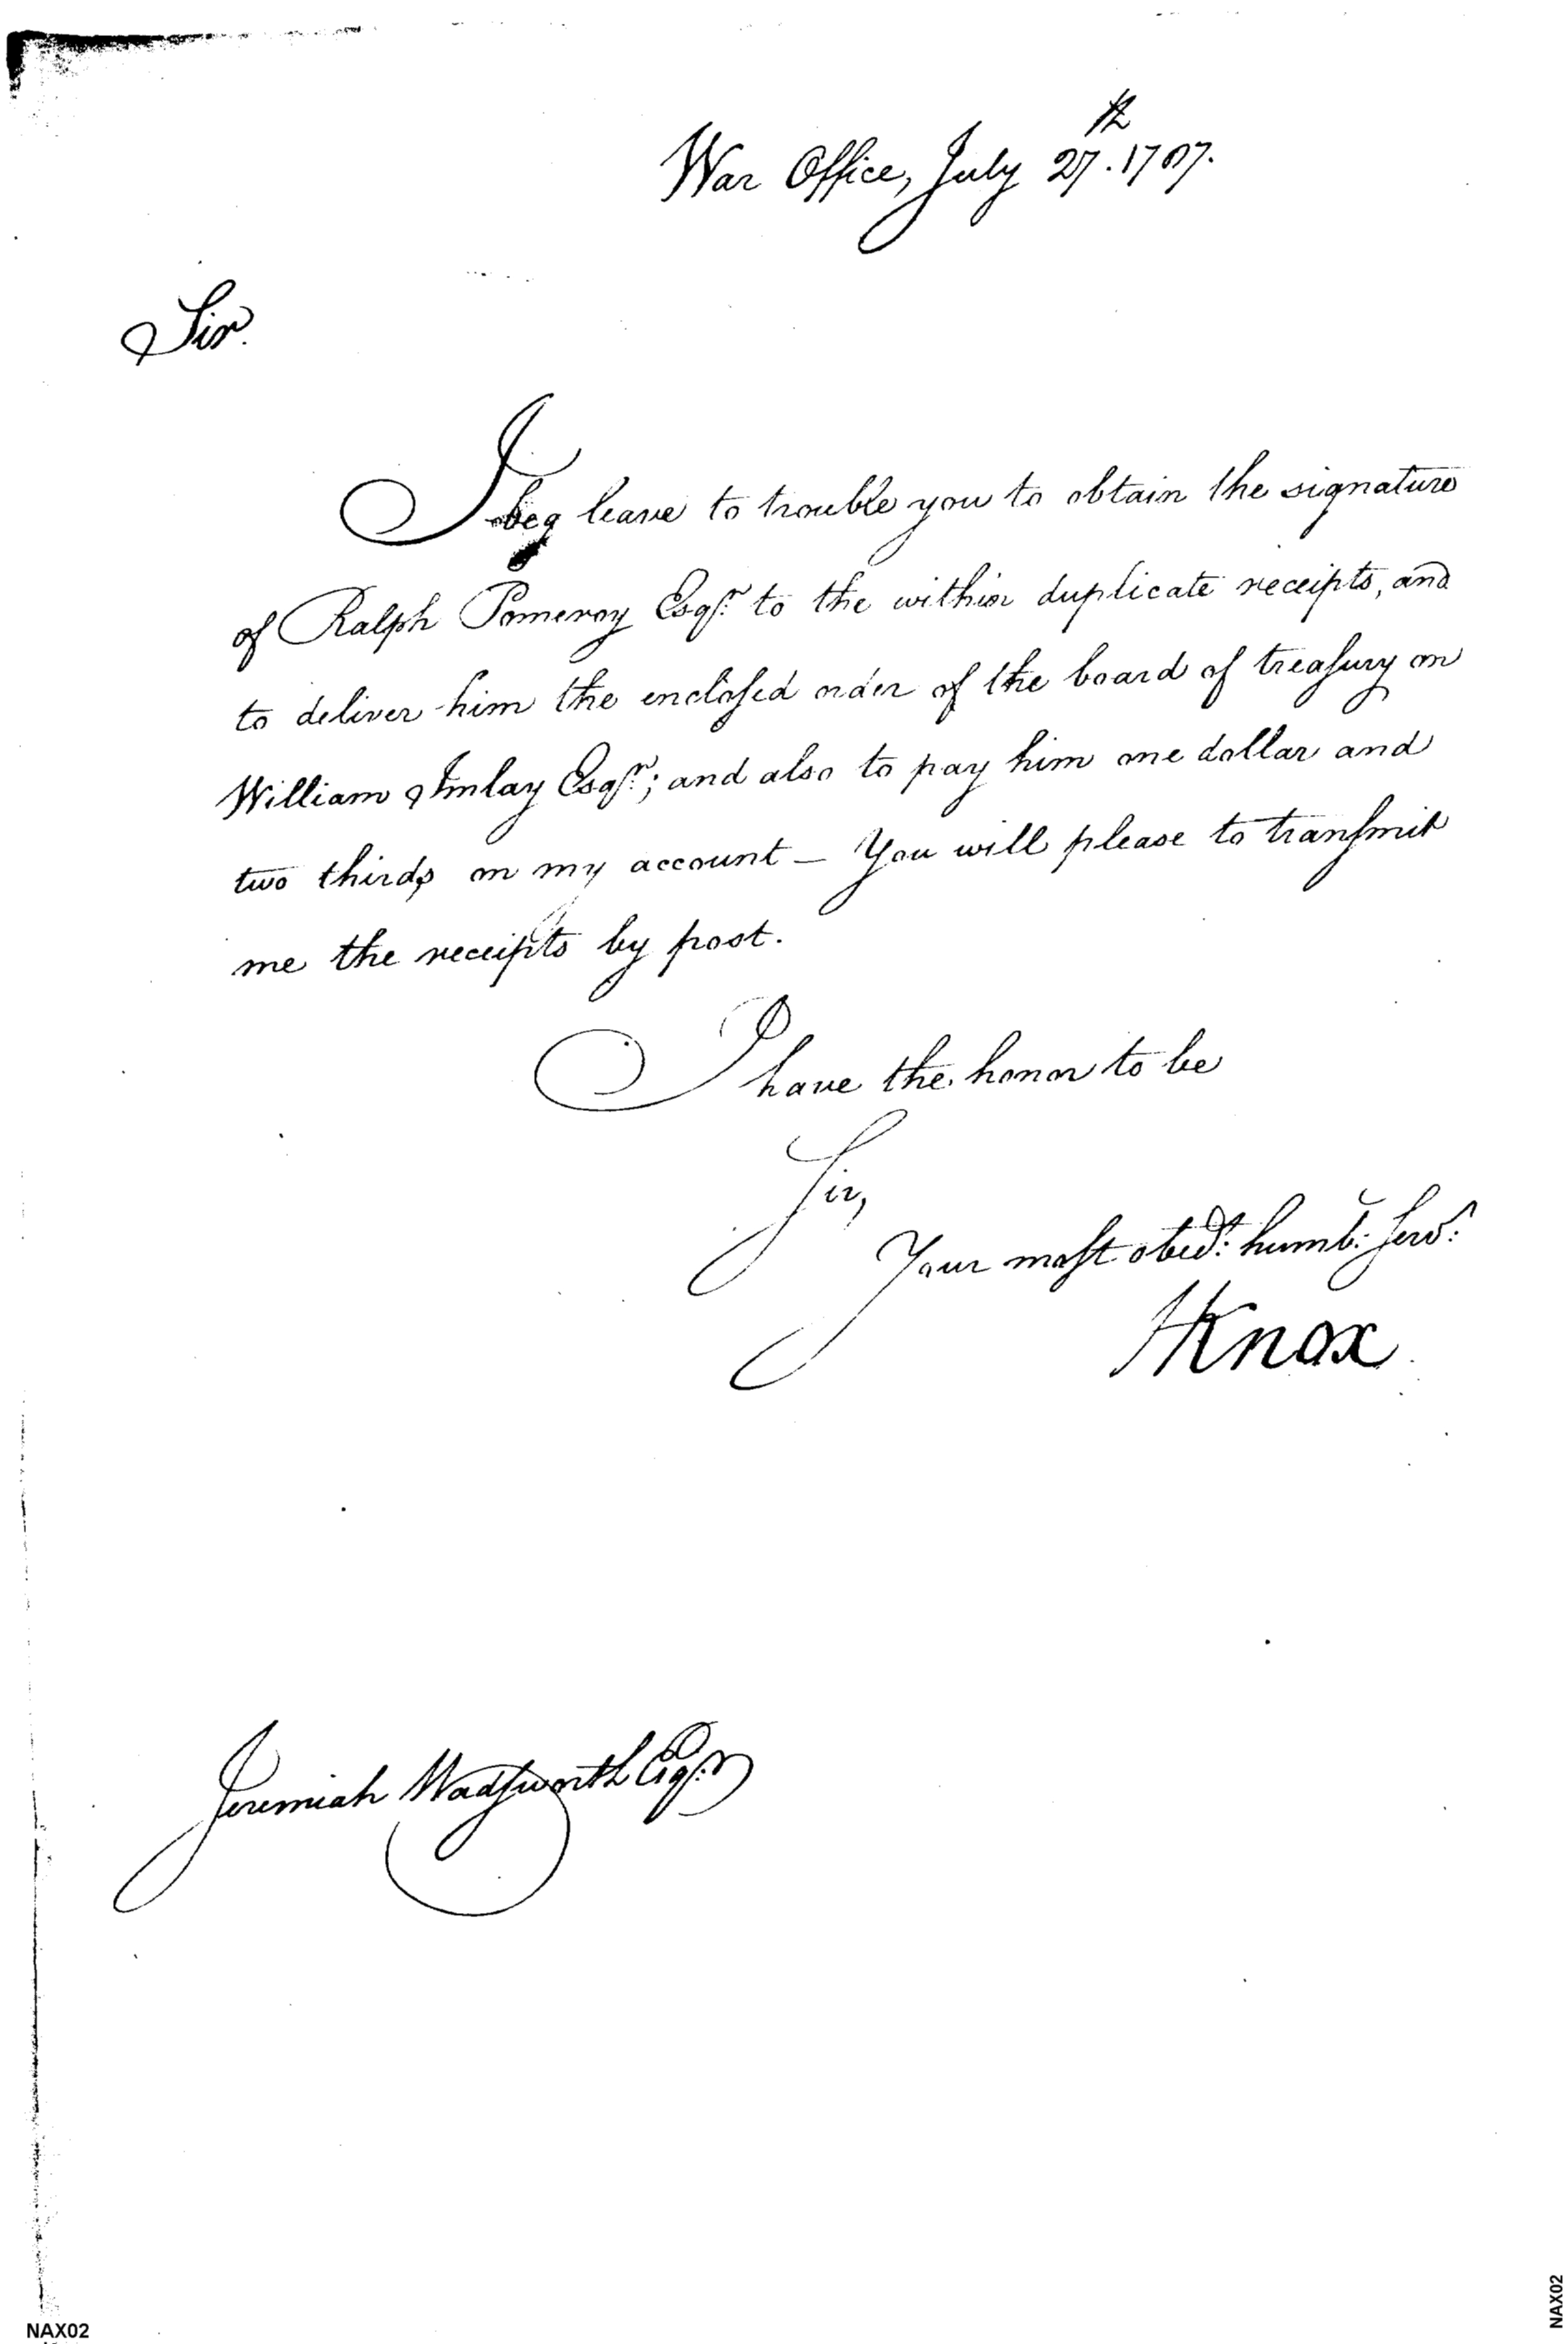 War Office, July 27th. 1787.
Sir.
I beg leave to trouble you to obtain the signature
of Ralph Pomeroy Esqr. to the within duplicate receipts, and
to deliver him the encloſed order of the board of treaſury on
William Imlay Esqr.; and also to pay him one dollar and
two thirds on my account — You will please to tranſmit
me the receipts by post.
I have the honor to be
Sir,
Your moſt obedt: humb: Servt:
HKnox
Jeremiah Wadſworth Esqr.
NAX02
NAX02